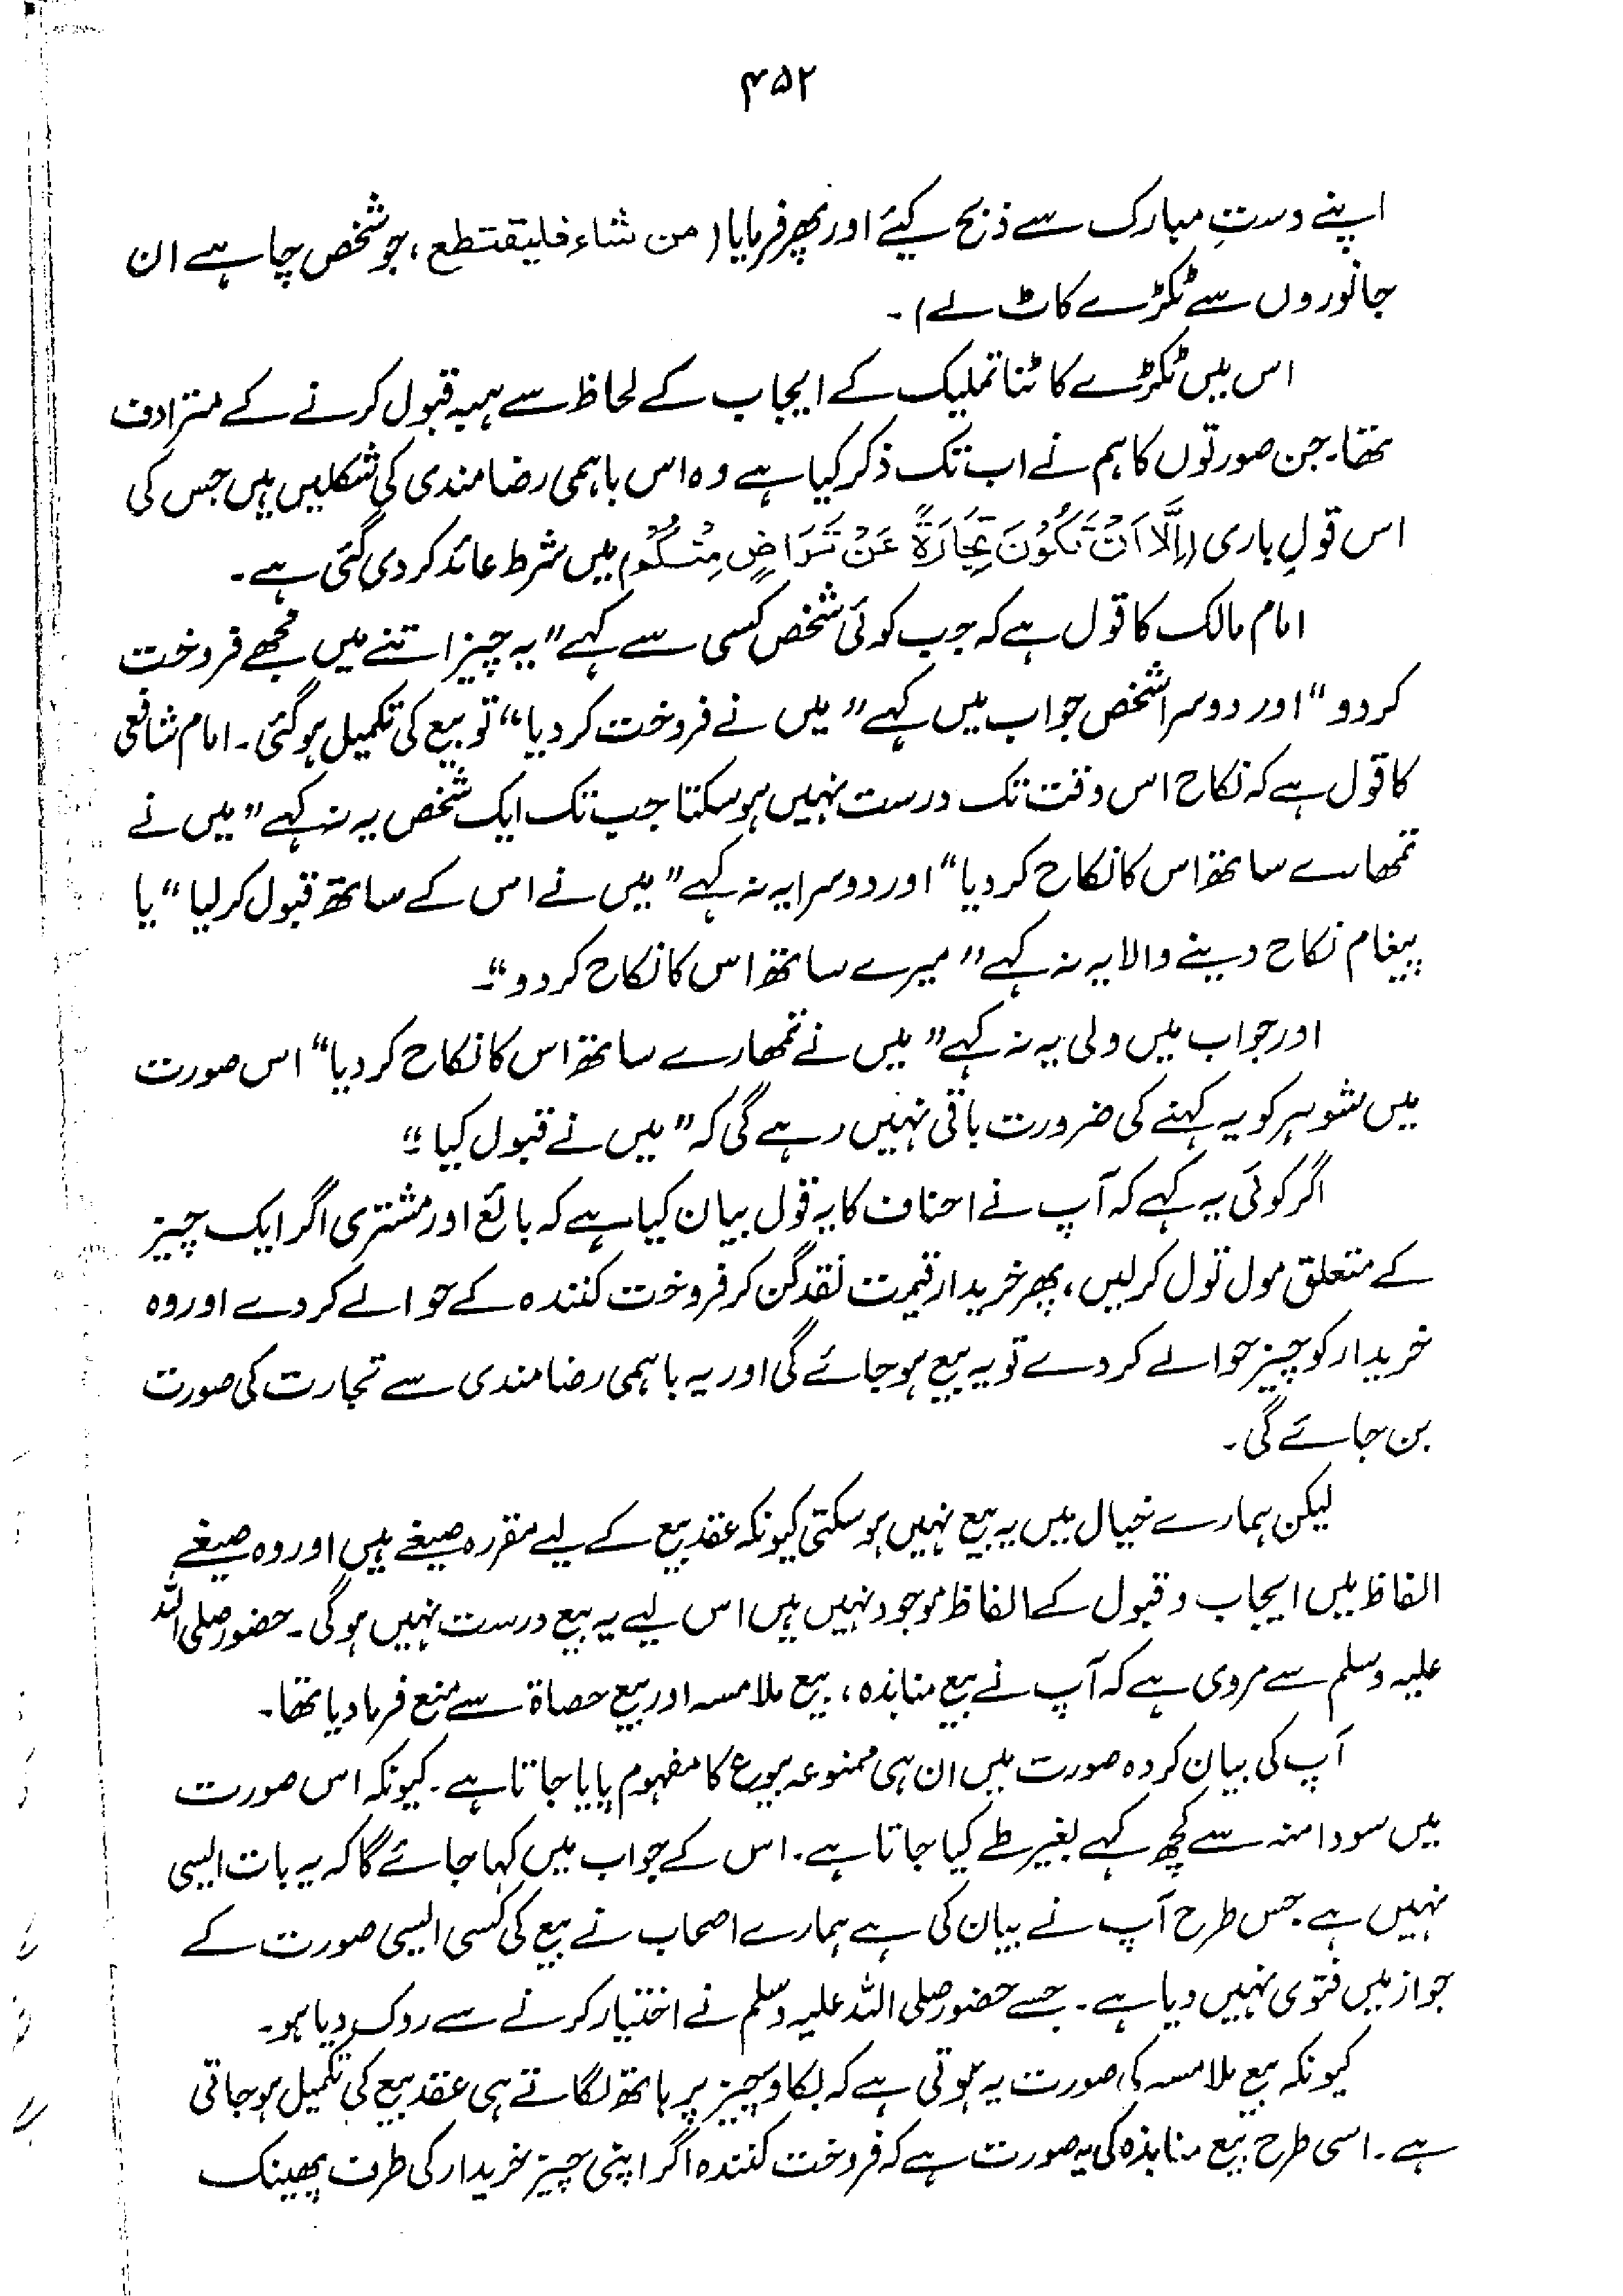 ۴۵۲
اپنے دستِ مبارک سے ذبح کیئے اور پھر فرمایا (من شاء فلیقتطع، جو شخص چاہے ان
جانوروں سے ٹکڑے کاٹ لے)۔
اس میں ٹکڑے کاٹنا تملیک کے ایجاب کے لحاظ سے ہبہ قبول کرنے کے مترادف
تھا۔ جن صورتوں کا ہم نے اب تک ذکر کیا ہے وہ اس باہمی رضامندی کی شکلیں ہیں جس کی
اس قولِ باری (اِلَّا اَنْ تَكُوْنَ تِجَارَةً عَنْ تَرَاضٍ مِنْكُمْ) میں شرط عائد کر دی گئی ہے۔
امام مالک کا قول ہے کہ جب کوئی شخص کسی سے کہے ”یہ چیز اتنے میں مجھے فروخت
کر دو“ اور دوسرا شخص جواب میں کہے ”میں نے فروخت کر دیا“ تو بیع کی تکمیل ہو گئی۔ امام شافعی
کا قول ہے کہ نکاح اس وقت تک درست نہیں ہو سکتا جب تک ایک شخص یہ نہ کہے ”میں نے
تمھارے ساتھ اس کا نکاح کر دیا“ اور دوسرا یہ نہ کہے ”میں نے اس کے ساتھ قبول کر لیا“ یا
پیغام نکاح دینے والا یہ نہ کہے ”میرے ساتھ اس کا نکاح کر دو“۔
اور جواب میں ولی یہ نہ کہے ”میں نے تمھارے ساتھ اس کا نکاح کر دیا“ اس صورت
میں شوہر کو یہ کہنے کی ضرورت باقی نہیں رہے گی کہ ”میں نے قبول کیا“۔
اگر کوئی یہ کہے کہ آپ نے احناف کا یہ قول بیان کیا ہے کہ بائع اور مشتری اگر ایک چیز
کے متعلق مول تول کر لیں، پھر خریدار قیمت نقد گن کر فروخت کنندہ کے حوالے کر دے اور وہ
خریدار کو چیز حوالے کر دے تو یہ بیع ہو جائے گی اور یہ باہمی رضامندی سے تجارت کی صورت
بن جائے گی۔
لیکن ہمارے خیال میں یہ بیع نہیں ہو سکتی کیونکہ عقد بیع کے لیے مقررہ صیغے ہیں اور وہ صیغے
الفاظ میں ایجاب و قبول کے الفاظ موجود نہیں ہیں اس لیے یہ بیع درست نہیں ہو گی۔ حضور صلی اللہ
علیہ وسلم سے مروی ہے کہ آپ نے بیع منابذہ، بیع ملامسہ اور بیع حصاۃ سے منع فرما دیا تھا۔
آپ کی بیان کردہ صورت میں ان ہی ممنوعہ بیوع کا مفہوم پایا جاتا ہے۔ کیونکہ اس صورت
میں سودا منہ سے کچھ کہے بغیر طے کیا جاتا ہے۔ اس کے جواب میں کہا جائے گا کہ یہ بات ایسی
نہیں ہے۔ جس طرح آپ نے بیان کی ہے ہمارے اصحاب نے بیع کی کسی ایسی صورت کے
جواز میں فتویٰ نہیں دیا ہے۔ جسے حضور صلی اللہ علیہ وسلم نے اختیار کرنے سے روک دیا ہو۔
کیونکہ بیع ملامسہ کی صورت یہ ہوتی ہے کہ بکاؤ چیز پر ہاتھ لگاتے ہی عقد بیع کی تکمیل ہو جاتی
ہے۔ اسی طرح بیع منابذہ کی یہ صورت ہے کہ فروخت کنندہ اگر اپنی چیز خریدار کی طرف پھینک